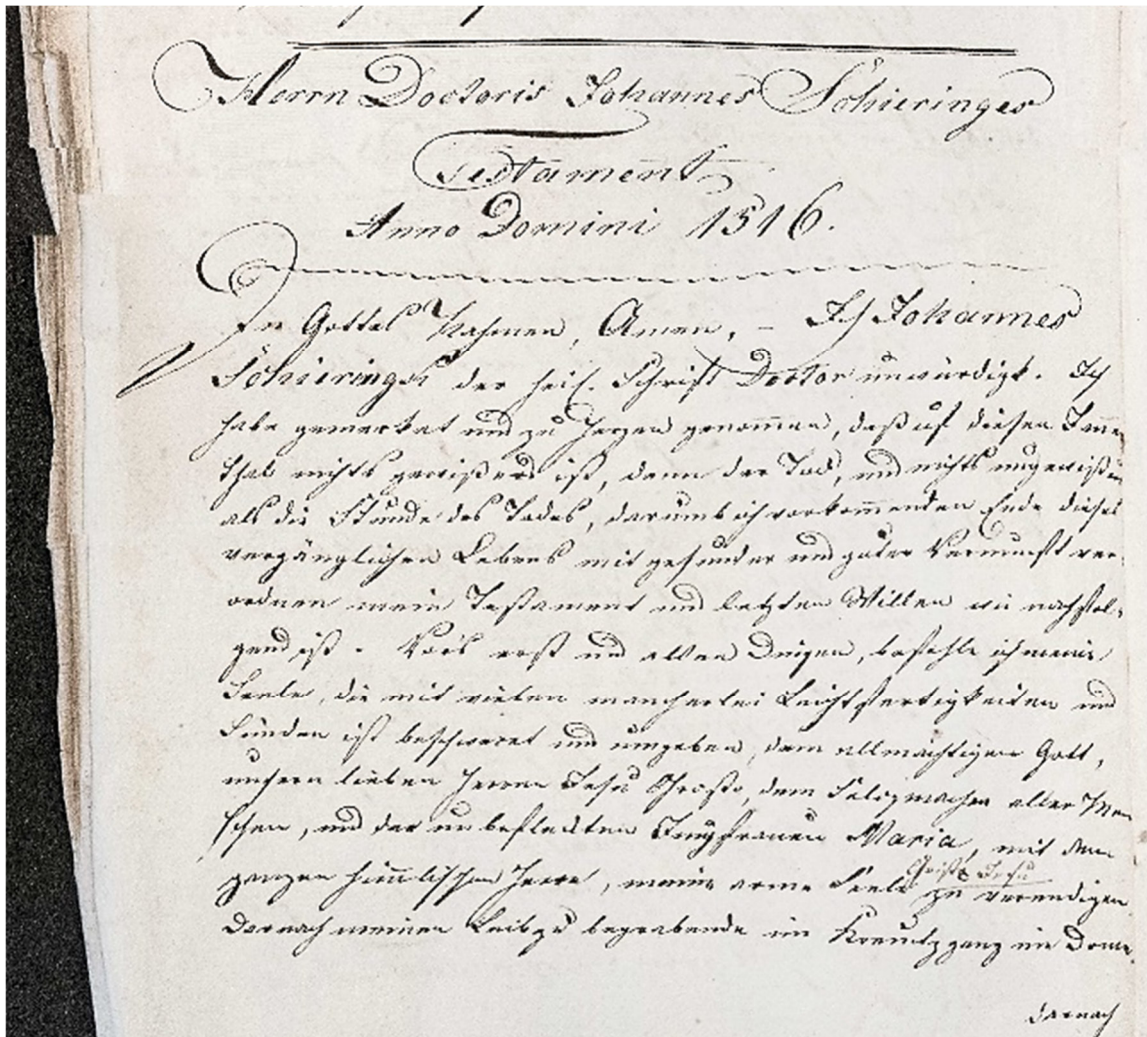 Herrn Doctoris Johannes Schieringes
Testament
Anno Domini 1516.
In Gottes Nahmen, Amen, – Ich Johannes
Schieringes der heil. Schrift Doctor unwürdigt. Ich
habe gemerket und zu Herzen genommen, daß uf diesen Jam̅er
thal nichts gewißers ist, denn der Tod, und nichts ungewißers
als die Stunde des Todes, darumb ich vorkom̅enden Ende dieses
vergänglichen Lebens mit gesunder und guter Vernunfft ver-
ordnen mein Testament und letzten Willen wie nachfol-
gend ist. Vors erst und allen Dingen, befehle ich meine
Seele, die mit vielen mancherlei Leichtfertigkeiten und
Sünden ist beschweret und umgeben, dem allmächtigen Gott,
unsern lieben Herrn Jesu Christo, dem Seligmacher aller Men
schen, und der unbefleckten Jungfrauen Maria, mit dem
ganzen him̅lischen Heere, meine arme Seele Christo Jesu zu vereinigen
Darnach meinen Leib zu begrabende im Kreutzgang im Dome,
darnach